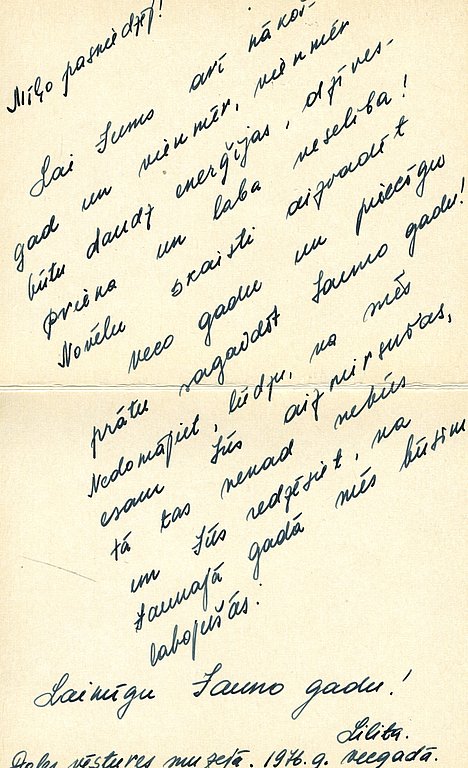 Mīļo pasniedzēj!
Lai Jums arī nākoš-
gad un vienmēr, vienmēr
būtu daudz enerģijas, dzīves-
prieka un laba veselība!
Novēlu skaisti aizvadīt
veco gadu un priecīgu
prātu sagaidīt Jauno gadu!
Nedomājiet, lūdzu, ka mēs
esam Jūs aizmirsušas,
tā tas nekad nebūs
un Jūs redzēsiet, ka
Jaunajā gadā mēs būsim
labojušās.
Laimīgu Jauno gadu!
Lilita.
vēstures muzejā. 1976.g. vecgadā.